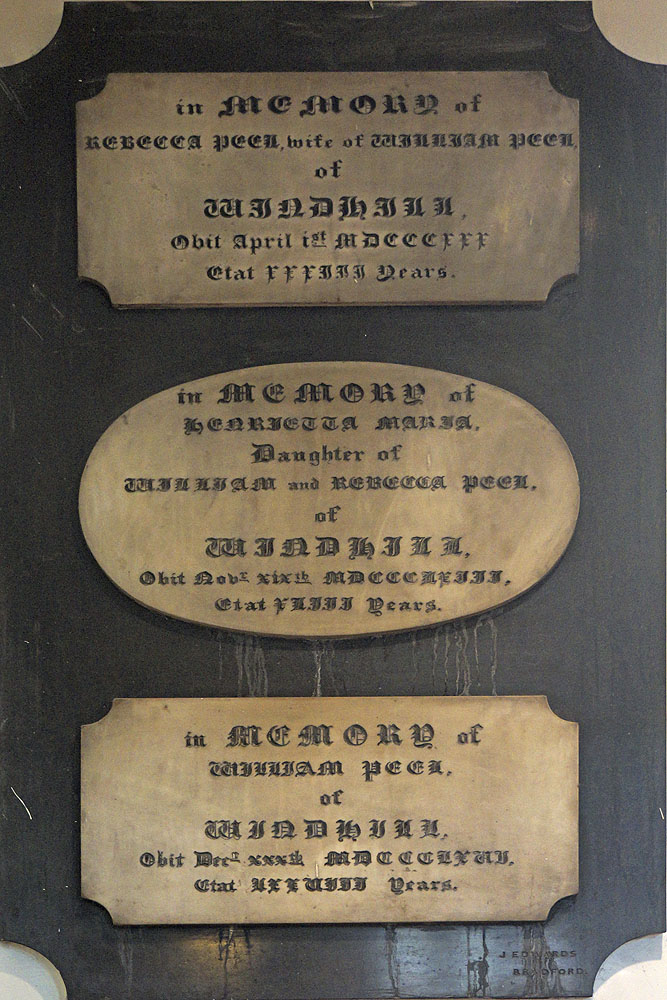 in MEMORY of
REBECCA PEEL, wife of WILLIAM PEEL,
of
WINDHILL,
Obit April ist MDCCCXXX
Etat XXXIII Years.
in MEMORY of
HENRIETTA MARIA,
Daughter of
WILLIAM and REBECCA PEEL,
of
WINDHILL,
Obit Novr xixth MDCCCLXIII,
Etat XLIII Years.
in MEMORY of
WILLIAM PEEL,
of
WINDHILL,
Obit Decr xxxth MDCCCLXVI,
Etat LXXVIII Years.
J. EDWARDS
BRADFORD.